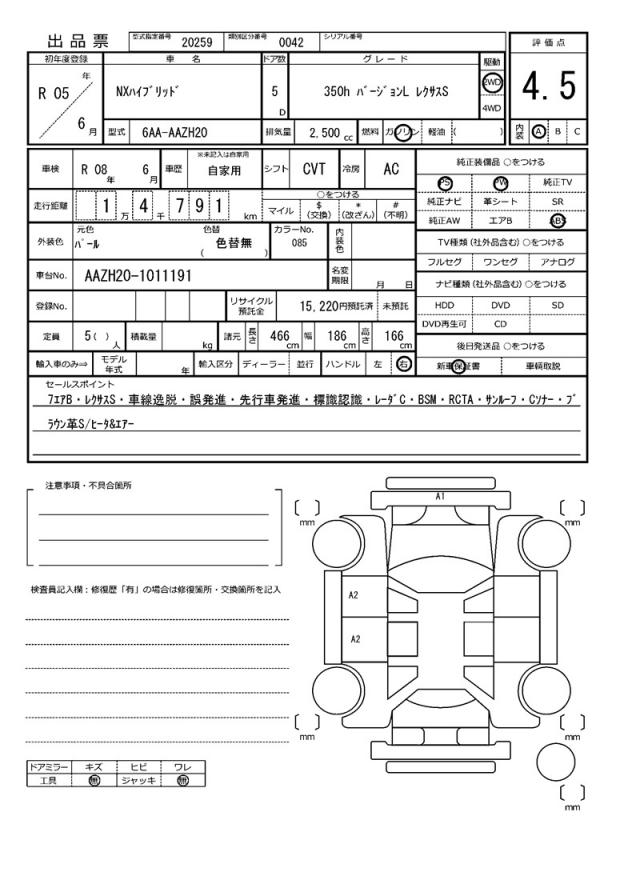 出品票 型式指定番号 20259 類別区分番号 0042 シリアル番号
初年度登録 車名 ドア数 グレード 駆動 評価点
R 05 年 6 月 NXハイブリッド 5 D 350h バージョンL レクサスS 2WD 4WD 4.5
型式 6AA-AAZH20 排気量 2,500 cc 燃料 ガソリン 軽油 ( ) 内装 A B C
車検 R 08 年 6 月 車歴 ※未記入は自家用 自家用 シフト CVT 冷房 AC 純正装備品 ○をつける
PS PW 純正TV
走行距離 1 万 4 千 791 km ○をつける マイル $ (交換) * (改ざん) # (不明) 純正ナビ 革シート SR
純正AW エアB ABS
外装色 元色 パール 色替 色替無 ( ) カラーNo. 085 内装色 TV種類 (社外品含む) ○をつける
フルセグ ワンセグ アナログ
車台No. AAZH20-1011191 名変期限 月 日 ナビ種類 (社外品含む) ○をつける
登録No. リサイクル預託金 15,220円預託済 未預託 HDD DVD SD
DVD再生可 CD
定員 5( ) 人 積載量 kg 諸元 長さ 466 cm 幅 186 cm 高さ 166 cm 後日発送品 ○をつける
輸入車のみ⇒ モデル年式 年 輸入区分 ディーラー 並行 ハンドル 左 右 新車保証書 車輌取説
セールスポイント
7エアB・レクサスS・車線逸脱・誤発進・先行車発進・標識認識・レーダC・BSM・RCTA・サンルーフ・Cソナー・ブ
ラウン革S/ヒータ&エアー
注意事項・不具合箇所
A1
mm mm
検査員記入欄：修復歴「有」の場合は修復箇所・交換箇所を記入
A2
A2
mm mm
ドアミラー キズ ヒビ ワレ
工具 無 ジャッキ 無
mm